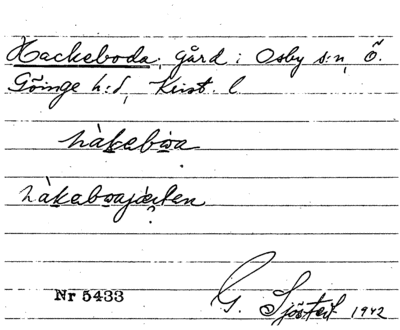 Hackeboda, gård i Osby s:n, Ö.
Göinge h:d, Krist. l
hàkabωa
hàkabωajæ̀rten
Nr 5433
G. Sjöstedt 1942